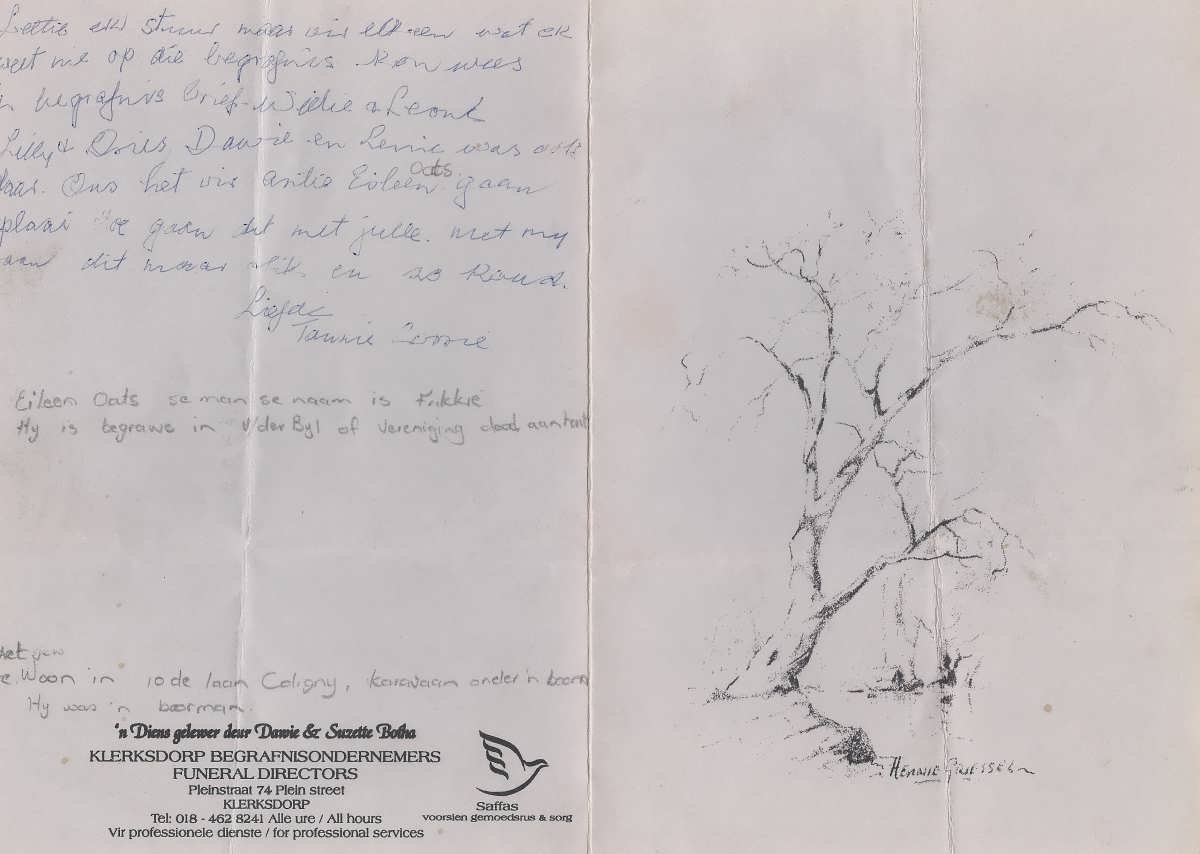 Lettie ek stuur maar vir elkeen wat ek
weet nie op die begrafnis kon wees
'n begrafnis brief. Willie & Leont
Lilly & Doris, Dawie en Lenie was ook
daar. Ons het vir antie Eileen Oats gaan
gaan dit met julle. met my
gaan dit maar en so koud.
Liefde
Tannie
Eileen Oats se man se naam is Frikkie
Hy is begrawe in v/der Byl of Vereniging dood aan
Woon in 10de laan Coligny, karavaan onder 'n boom
Hy was 'n boorman.
'n Diens gelewer deur Dawie & Suzette Botha
KLERKSDORP BEGRAFNISONDERNEMERS
FUNERAL DIRECTORS
Pleinstraat 74 Plein street
KLERKSDORP
Tel: 018 - 462 8241 Alle ure / All hours
Vir professionele dienste / for professional services
Saffas
voorsien gemoedsrus & sorg
HENNIE